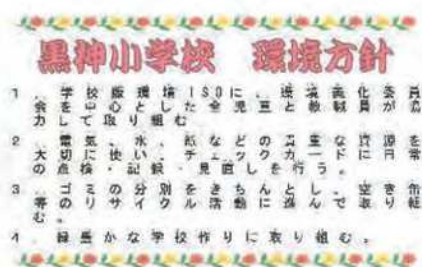 黒神小学校 環境方針
1．学校版環境ISOに、環境美化委員
会を中心とした全児童と教職員が協
力して取り組む
2．電気、水、紙などの貴重な資源を
大切に使い、チェックカードに日常
の点検・記録・見直しを行う。
3．ゴミの分別をきちんとし、空き缶
等のリサイクル活動に進んで取り組
む。
4．緑豊かな学校作りに取り組む。